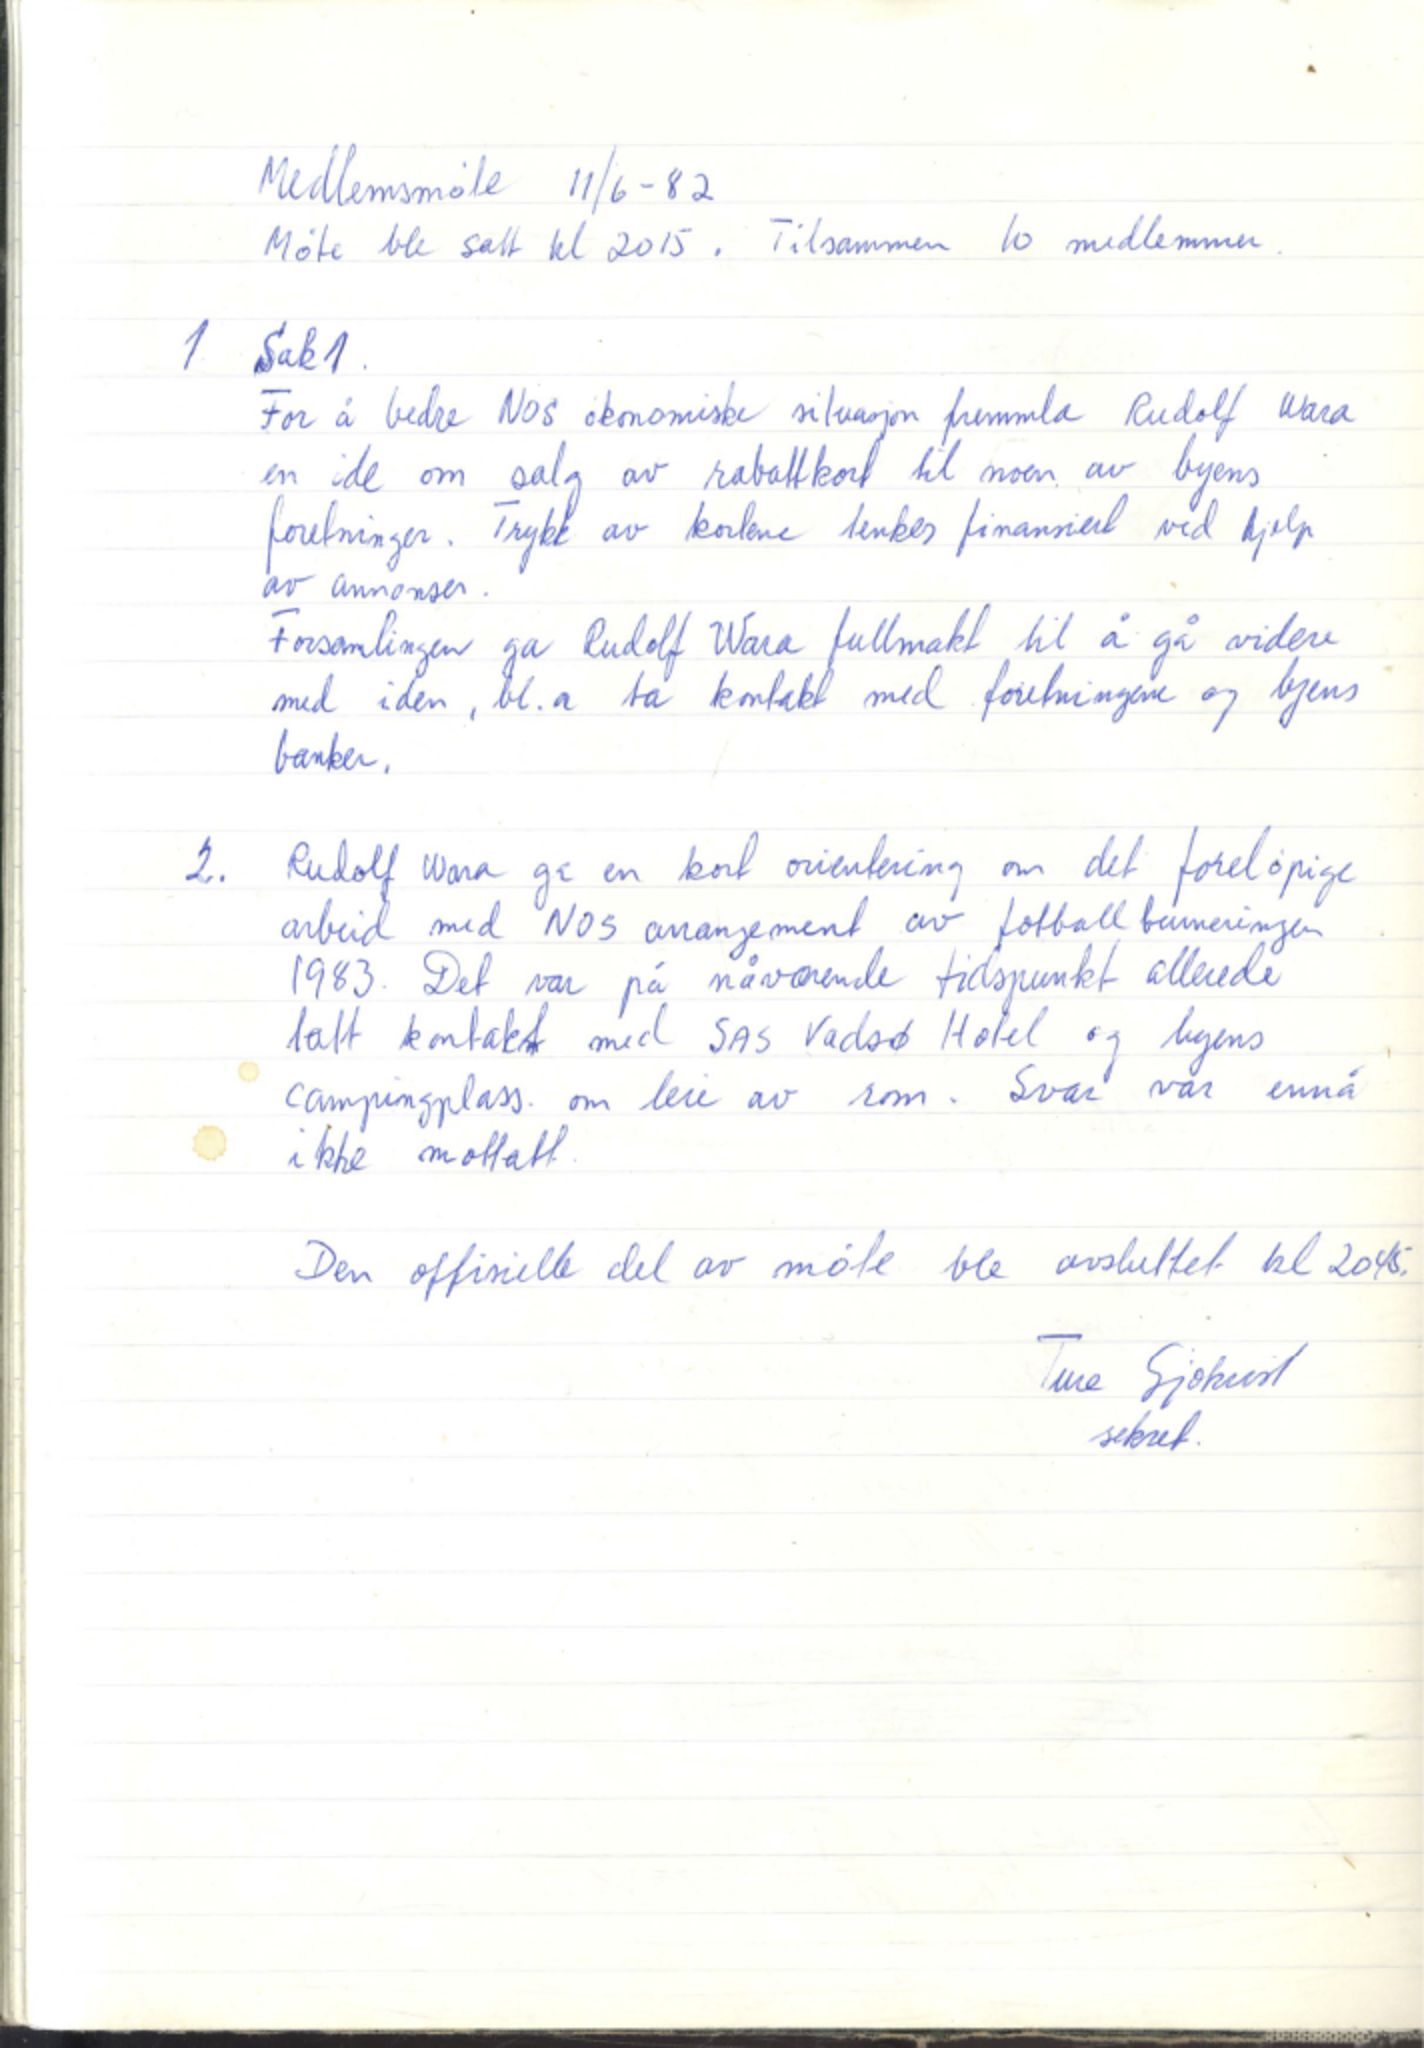 Medlemsmöte 11/6-82
Möte ble satt kl 2015. Tilsammen 10 medlemmer.
1 Sak 1.
For å bedre NOS ökonomiske situasjon fremmla Rudolf Wara
en ide om salg av rabattkort til noen av byens
foretninger. Trykk av kortene tenkes finansiert ved hjelp
av annonser.
Forsamlingen ga Rudolf Wara fullmakt til å gå videre
med iden, bl.a ta kontakt med foretningene og byens
banker.
2. Rudolf Wara ga en kort orientering om det forelöpige
arbeid med NOS arrangement av fotballturneringen
1983. Det var på nåværende tidspunkt allerede
tatt kontakt med SAS Vadsø Hotel og byens
campingplass. om leie av rom. Svar var ennå
ikke mottatt.
Den offisielle del av möte ble avsluttet kl 2045.
Ture Sjökvist
sekret.